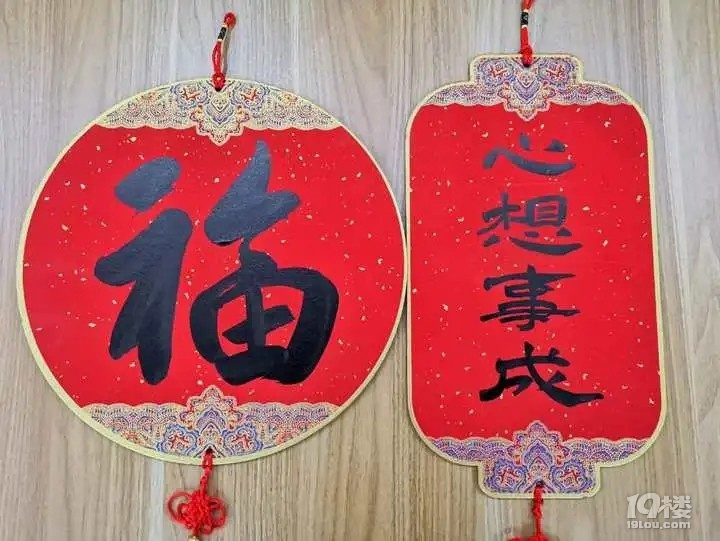 福
心想事成
19楼
19lou.com